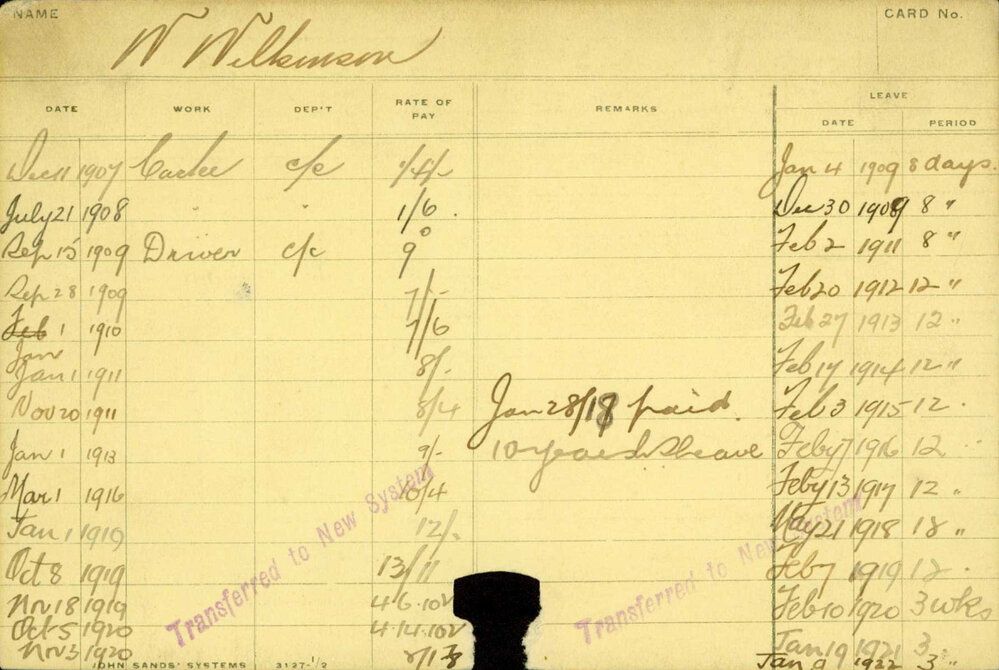 NAME CARD No.
W Wilkinson
DATE WORK DEP'T RATE OF PAY REMARKS LEAVE
DATE PERIOD
Dec 11 1907 c/c Jan 4 1909 8 days.
July 21 1908 " " 1/6. Dec 30 1909 8 "
Sep 15 1909 Driver c/c Feb 2 1911 8 "
Sep 28 1909 7/- Feb 20 1912 12 "
Feb 1 1910 7/6 Feb 27 1913 12 "
Jan
Jan 1 1911 8/- Feb 14 1914 12 "
Nov 20 1911 8/4 Jan 28/18 paid. Feb 3 1915 12 "
Jan 1 1913 9/- 10 years Feby 7 1916 12 "
Mar 1 1916 10/4 Feby 13 1917 12 "
Jan 1 1919 12/- May 21 1918 18 "
Oct 8 1919 13/11 Feb 7 1919 12 "
Nov 18 1919 4.6.10½ Feb 10 1920 3 wks
Oct 5 1920 4.14.10½
Nov 3 1920 Jan 19 1921 3 "
Jan 1922 3 "
Transferred to New System
Transferred to New System
JOHN SANDS' SYSTEMS 3127-1/2